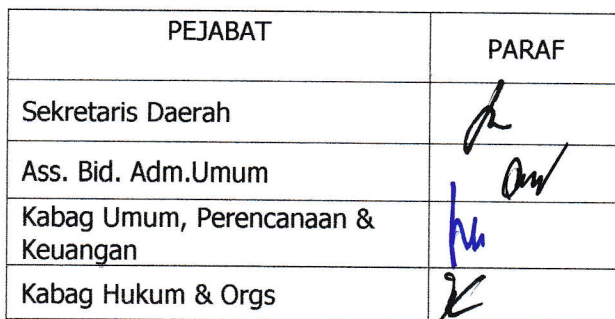 PEJABAT
PARAF
Sekretaris Daerah
Ass. Bid. Adm.Umum
Kabag Umum, Perencanaan &
Keuangan
Kabag Hukum & Orgs